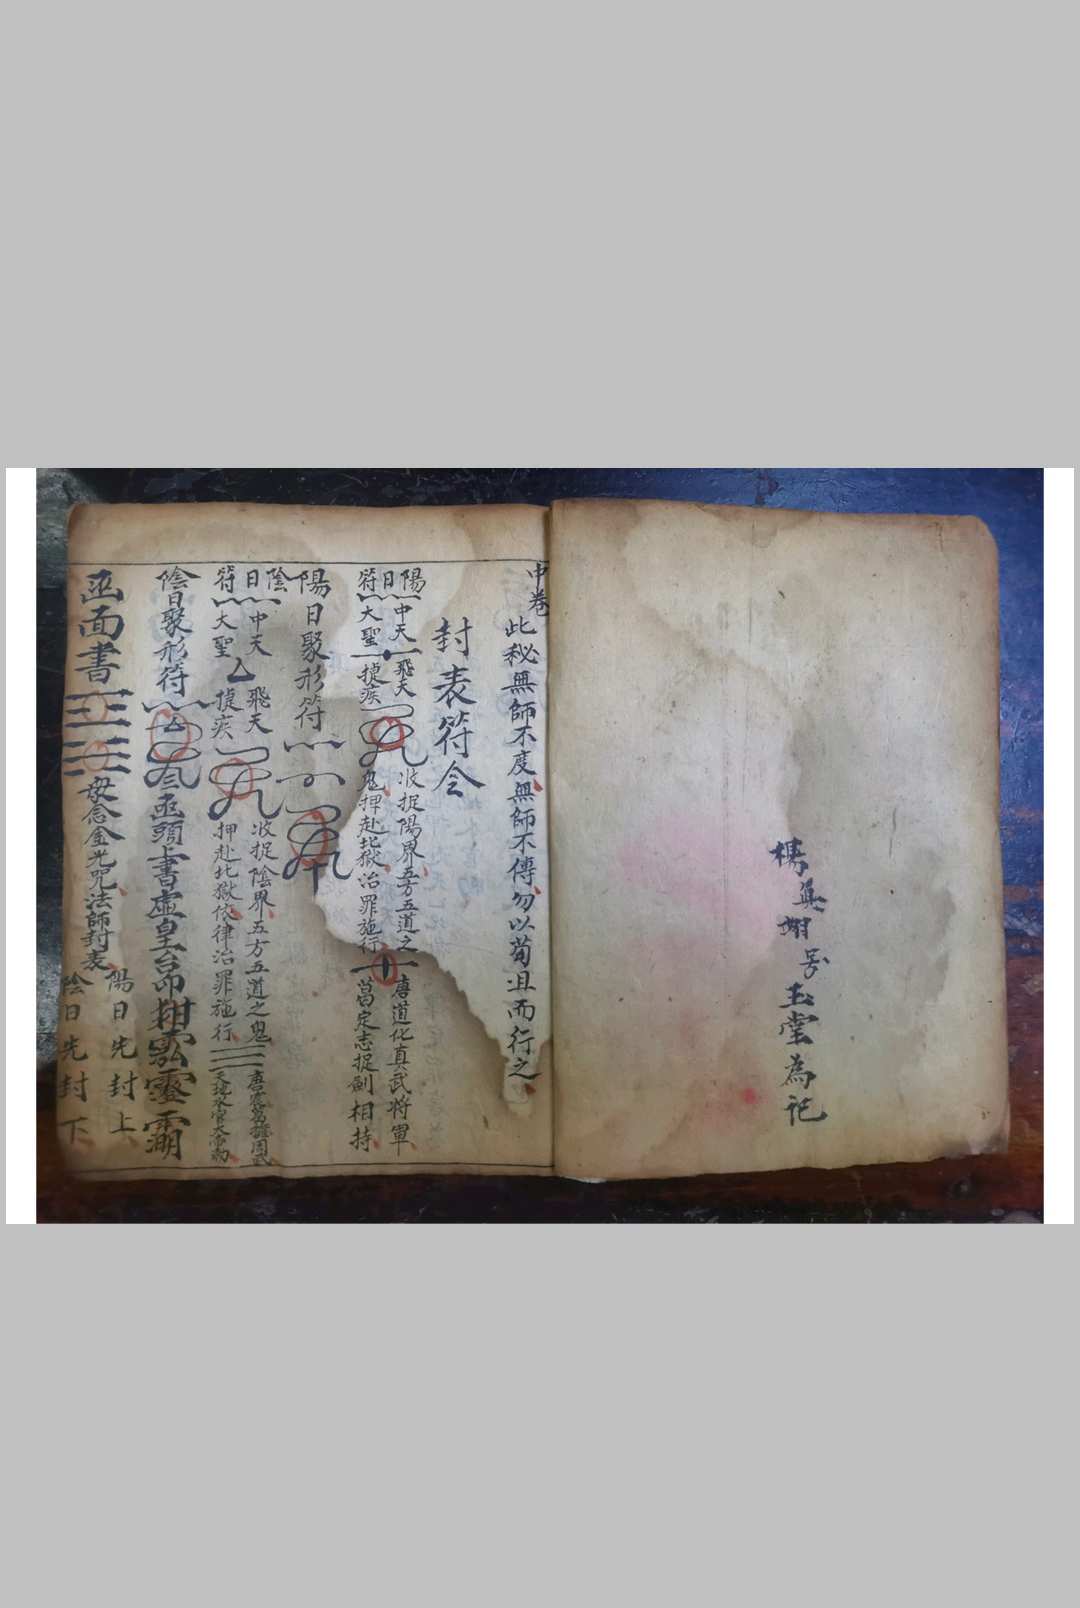 楊真 玉堂為記
中卷
此秘無師不度無師不傳勿以苟且而行之
封表符令
陽日符
中天 飛天 收捉陽界五方五道之 唐道化真武將軍
大聖 捷疾 鬼押赴北獄治罪施行 葛定志捉劍相持
陽日聚形符
陰日符
中天 飛天 收捉陰界五方五道之鬼 唐宏葛雍周武
大聖 捷疾 押赴北獄依律治罪施行 天地水官大帝
陰日聚形符 函頭書虛皇台印
函面書 毋念金光咒法師封表
陽日先封上
陰日先封下